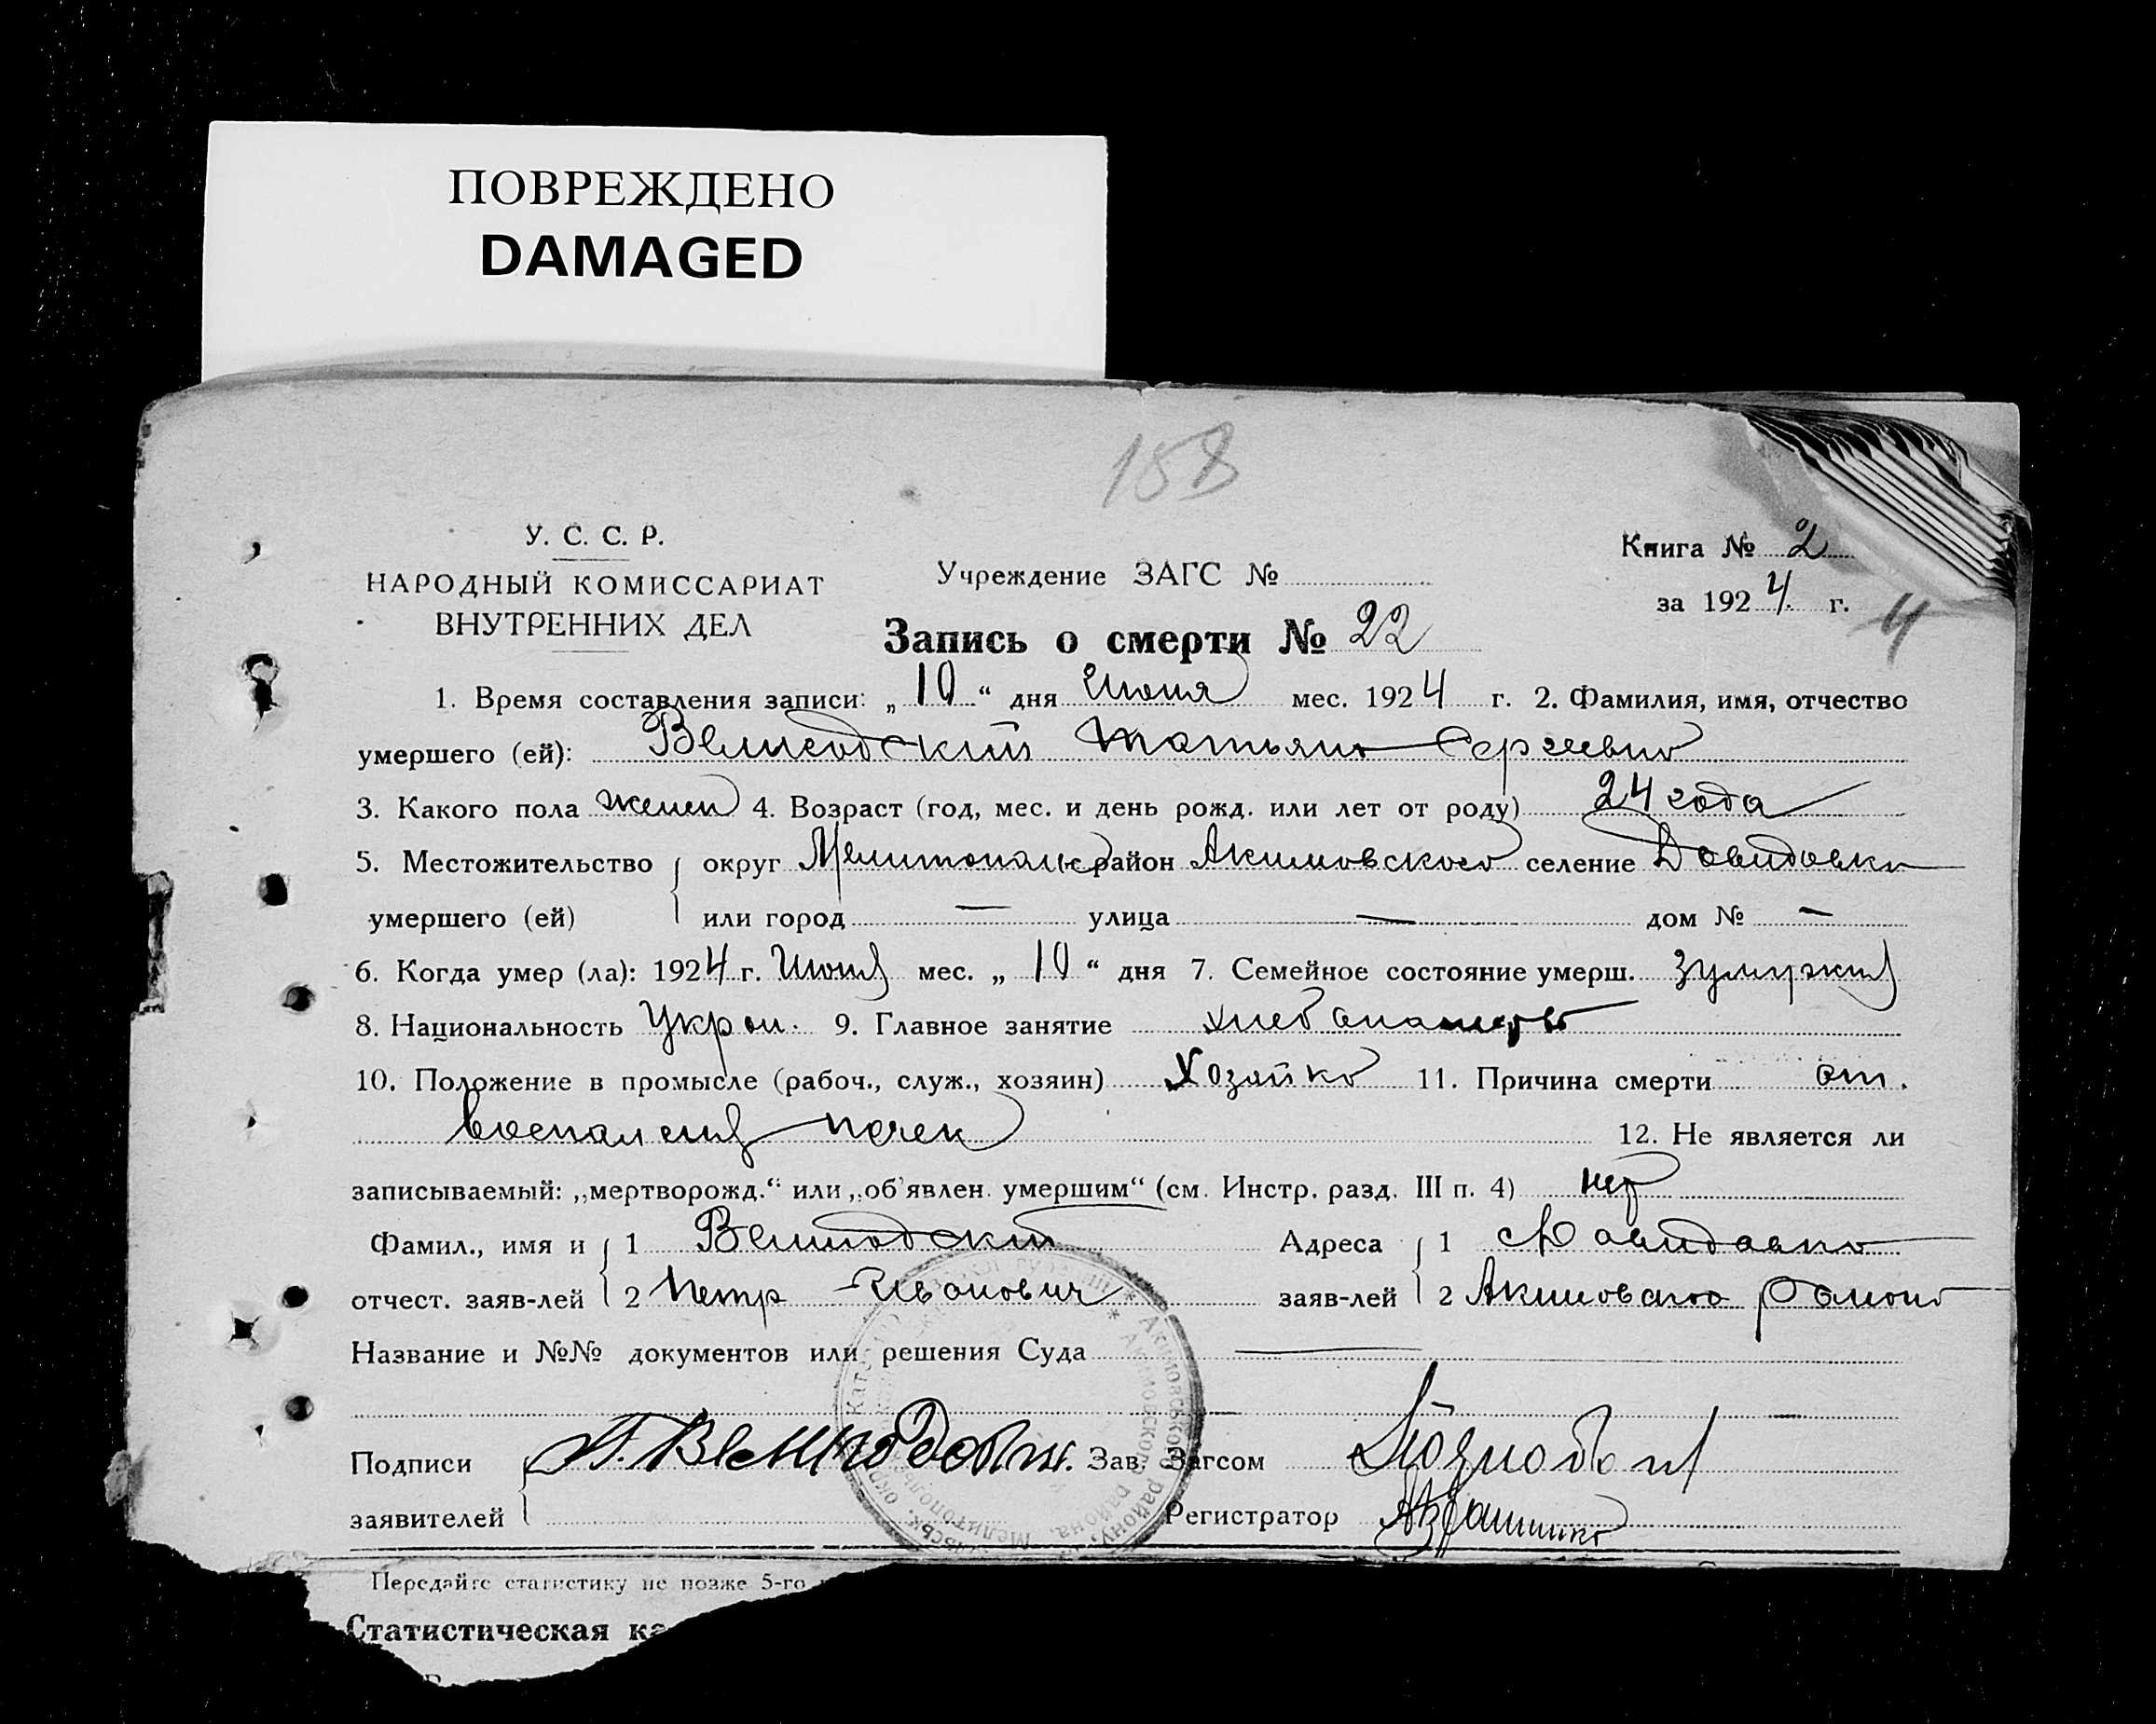 ПОВРЕЖДЕНО
DAMAGED
158
У. С. С. Р.
НАРОДНЫЙ КОМИССАРИАТ
ВНУТРЕННИХ ДЕЛ
Учреждение ЗАГС №
Книга № 2
за 1924 г. 4
Запись о смерти № 22
1. Время составления записи: „10“ дня Июня мес. 1924 г. 2. Фамилия, имя, отчество
умершего (ей): Татьяна Сергеевна
3. Какого пола женск 4. Возраст (год, мес. и день рожд. или лет от роду) 24 года
5. Местожительство округ Мелитопольс район Акимовского селение Давидовка
умершего (ей) или город — улица — дом № —
6. Когда умер (ла): 1924 г. Июня мес. „10“ дня 7. Семейное состояние умерш. замужняя
8. Национальность Украи. 9. Главное занятие хлебопашество
10. Положение в промысле (рабоч., служ., хозяин) Хозяйка 11. Причина смерти от.
воспаления почек 12. Не является ли
записываемый: „мертворожд.“ или „об'явлен. умершим“ (см. Инстр. разд. III п. 4) нет
Фамил., имя и 1 Адреса 1 Давидовка
отчест. заяв-лей 2 Петр Иванович заяв-лей 2 Акимовского района
Название и №№ документов или решения Суда —
Подписи Зав. Загсом
заявителей Регистратор
Передайте статистику не позже 5-го
Статистическая ка